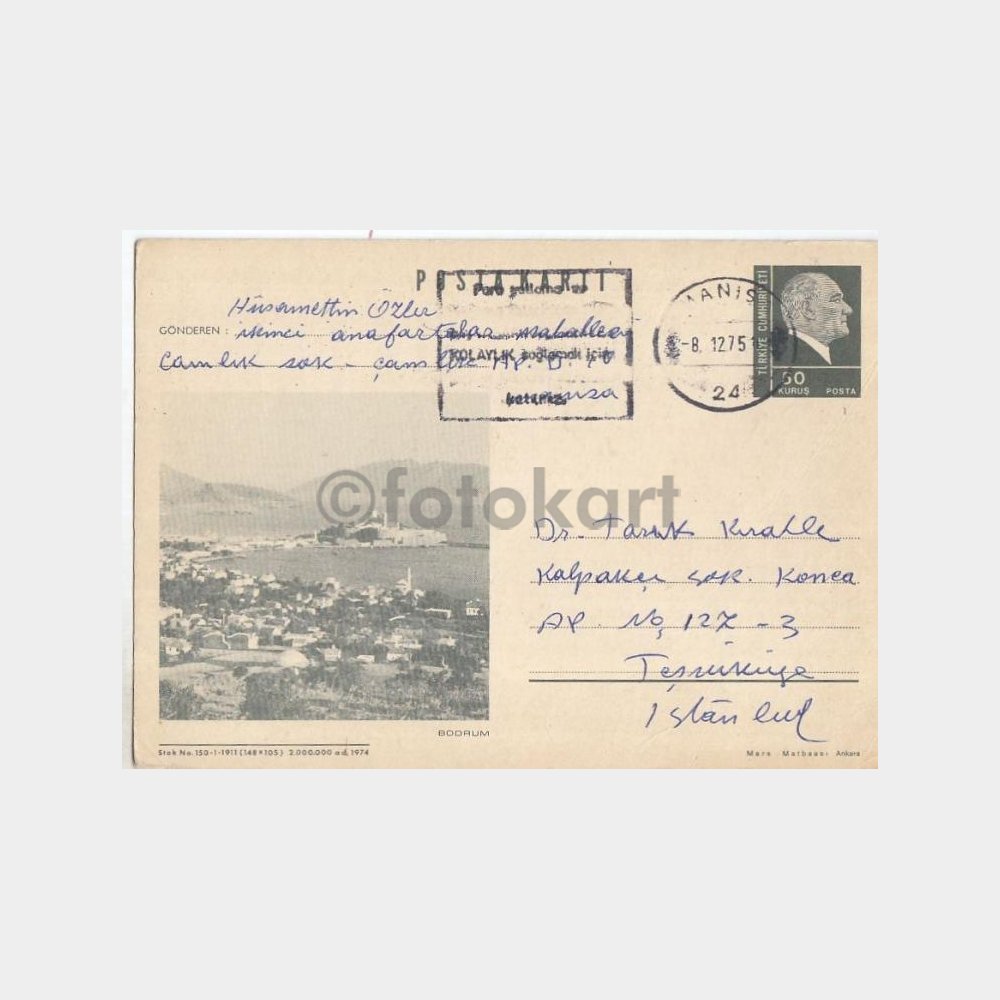 POSTA KARTI
Para
KOLAYLIK sağlamak için
MANİS
-8. 12.75
24
TÜRKİYE CUMHURİYETİ
50
KURUŞ POSTA
Hüsamettin Özler
GÖNDEREN : ikinci anafartalar mahallesi
Çamlık sok - AP. D. 10
Manisa
©fotokart
Dr. Tarık
Kalpakçı sok. Konca
AP. No, 127 - 3
Teşvikiye
İstanbul
BODRUM
Stok No. 150-1-1911 (148×105) 2.000.000 ad. 1974
Mars Matbaası Ankara